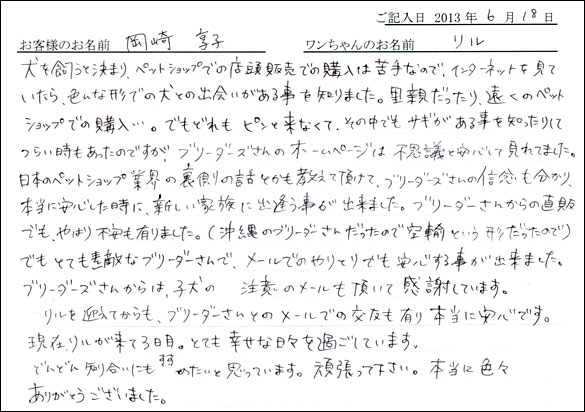 ご記入日 2013年 6月 18日
お客様のお名前 岡崎 享子 ワンちゃんのお名前 リル
犬を飼うと決まり、ペットショップでの店頭販売での購入は苦手なので、インターネットを見て
いたら、色んな形での犬との出会いがある事を知りました。里親だったり、遠くのペット
ショップでの購入…。でもどれも ピンと来なくて、その中でも サギがある事を知ったりして
つらい時もあったのですが、ブリーダーズさんの ホームページは 不思議と安心して見れてました。
日本のペットショップ業界の裏側の話とかも教えて頂けて、ブリーダーズさんの信念も分かり、
本当に安心した時に、新しい家族に出逢う事が出来ました。ブリーダーさんからの直販
でも、やはり不安も有りました。(沖縄のブリーダーさんだったので空輸という形だったので)
でも とても素敵なブリーダーさんで、メールでのやりとりでも安心する事が出来ました。
ブリーダーズさんからは、子犬の 注意のメールも頂いて 感謝しています。
リルを迎えてからも、ブリーダーさんとのメールでの交友も有り 本当に安心です。
現在、リルが来て3日目。とても幸せな日々を過ごしています。
どんどん知り合いにもすすめたいと思っています。頑張って下さい。本当に色々
ありがとうございました。